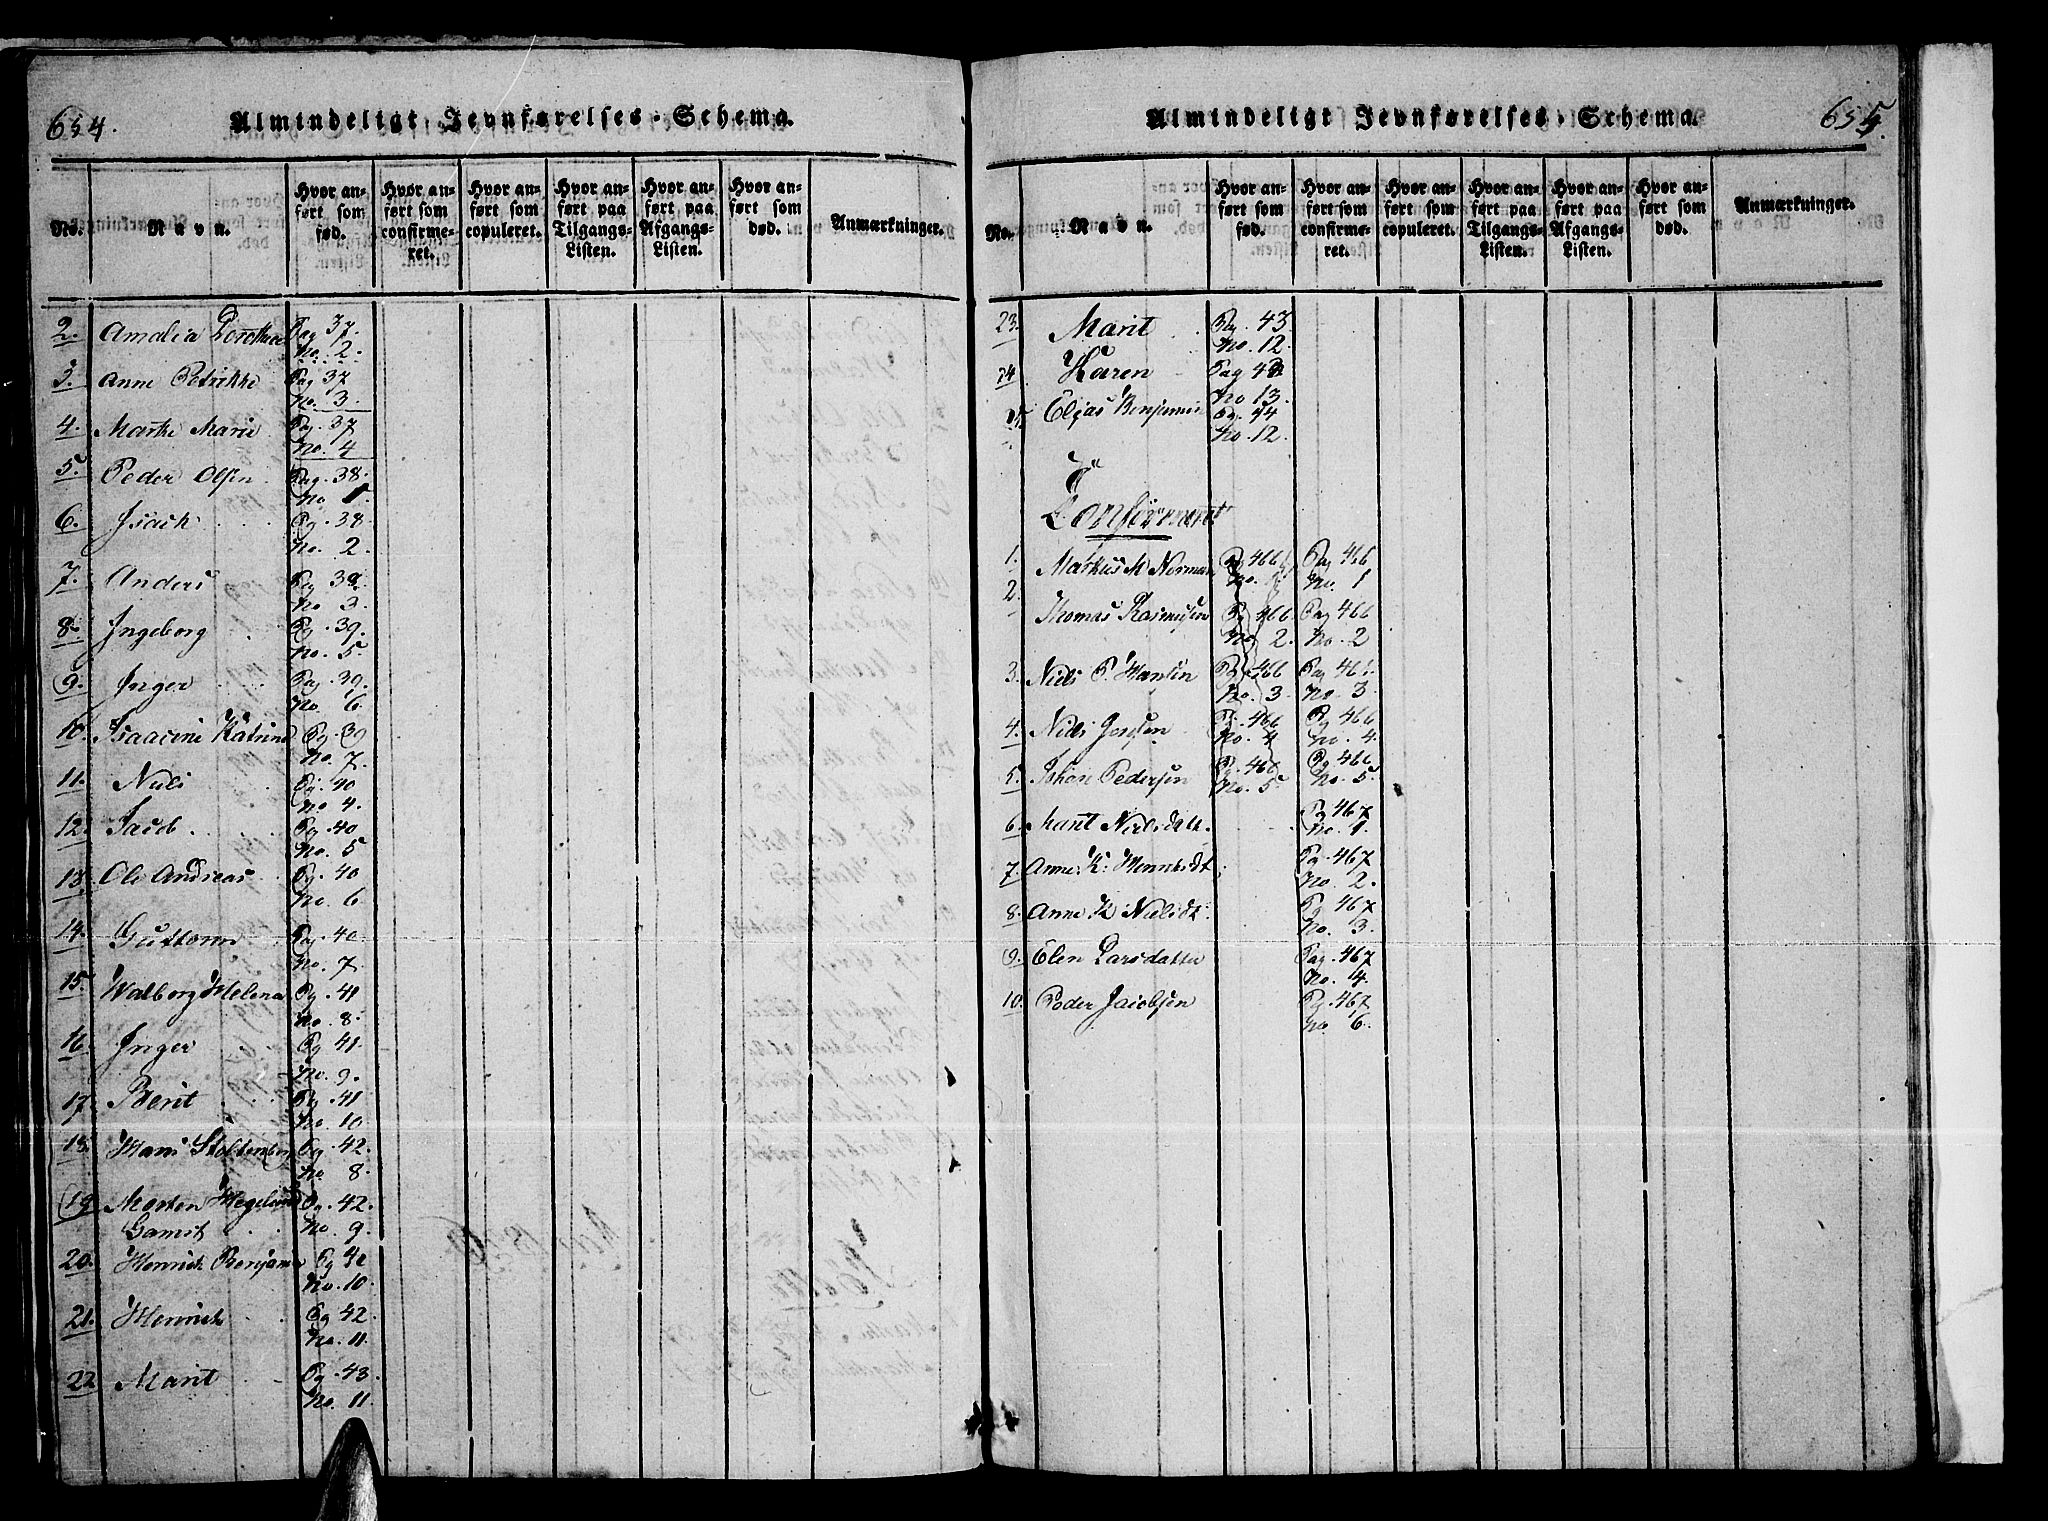 654.
Almindeligt Jevnførelses-Schema.
No.
Navn.
Hvor an-
ført som
fød.
Hvor an-
ført som
confirme-
ret.
Hvor an-
ført som
copuleret.
Hvor an-
ført paa
Tilgangs-
Listen.
Hvor an-
ført paa
Afgangs-
Listen.
Hvor an-
ført som
død.
Anmærkninger.
2. Amalia Dorothea Pag 37
No. 2.
3. Anne Petrikke Pag 37
No. 3.
4. Marthe Marie Pag. 37
No. 4
5. Peder Olsen Pag. 38.
No 1.
6. Isach Pg. 38.
No. 2.
7. Anders Pg. 38.
No 3.
8. Ingeborg Pg. 39.
No. 5.
9. Inger Pag. 39.
No. 6
10. Isaacine Katrine Pg. 39
No. 7.
11. Niels Pg. 40
No 4.
12. Jacob Pg. 40
No. 5
13. Ole Andreas Pg. 40
No. 6
14. Guttorm Pag. 40.
No. 7
15. Walborg Helena Pg. 41
No. 8.
16. Inger Pg. 41.
No. 9.
17. Berit Pg. 41
No. 10
18. Hans Stoltenberg Pg. 42.
No 8.
19. Morten Hegelund Pg. 42.
Gamst No. 9.
20. Henrich Benjamin Pg 42
No. 10.
21. Henrich Pg. 42
No. 11.
22 Marit Pg. 43
No. 11
655.
Almindeligt Jevnførelses-Schema.
No.
Navn.
Hvor an-
ført som
fød.
Hvor an-
ført som
confirme-
ret.
Hvor an-
ført som
copuleret.
Hvor an-
ført paa
Tilgangs-
Listen.
Hvor an-
ført paa
Afgangs-
Listen.
Hvor an-
ført som
død.
Anmærkninger.
23. Marit Pg. 43
No. 12.
24. Karen Pag 43
No 13.
25. Elias Benjamin Pg. 44
No. 12.
Confirmeret
1. Markus M Norman Pg 466 Pag 466
No. 1 No. 1
2. Thomas Rasmussen Pg 466 Pag 466
No 2. No. 2
3. Niels P. Hansen Pg. 466 Pag 466
No. 3 No. 3
4. Niels Pg. 466 Pg 466
No. 4 No. 4.
5. Johan Pedersen Pg. 466 Pg 466
No. 5 No. 5.
6. Marit Nielsdatt. Pg 467
No. 1.
7. Anne K: Pg. 467
No. 2.
8. Anne K Nielsdt. Pg 467
No. 3.
9. Elen Larsdatter Pag. 467
No. 4.
10. Peder Jacobsen Pg. 467
No. 6.